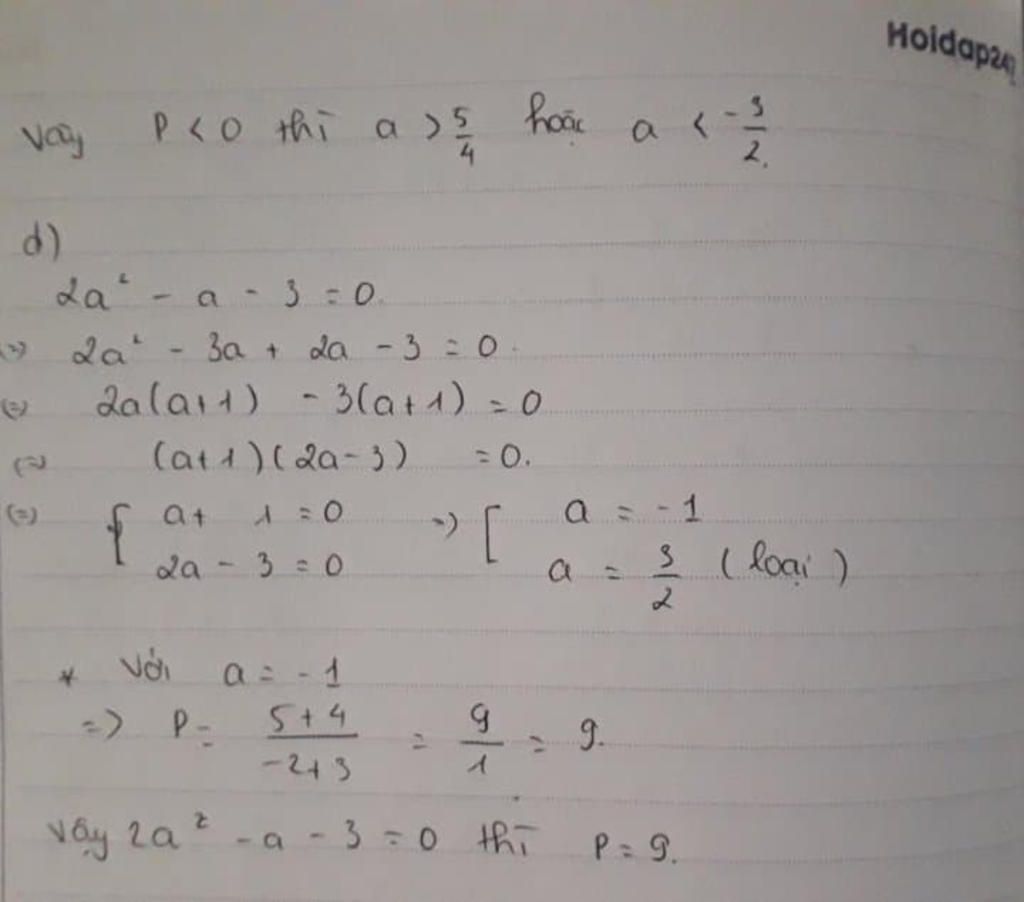 Hoidap247
Vậy P < 0 thì a > 5/4 hoặc a < -3/2.
d)
2a² - a - 3 = 0.
(=) 2a² - 3a + 2a - 3 = 0.
(=) 2a(a+1) - 3(a+1) = 0
(=) (a+1)(2a-3) = 0.
(=) { a + 1 = 0 =) [ a = -1
2a - 3 = 0 a = 3/2 (loại)
* Với a = -1
=> P = (5+4)/(-2+3) = 9/1 = 9.
Vậy 2a² - a - 3 = 0 thì P = 9.